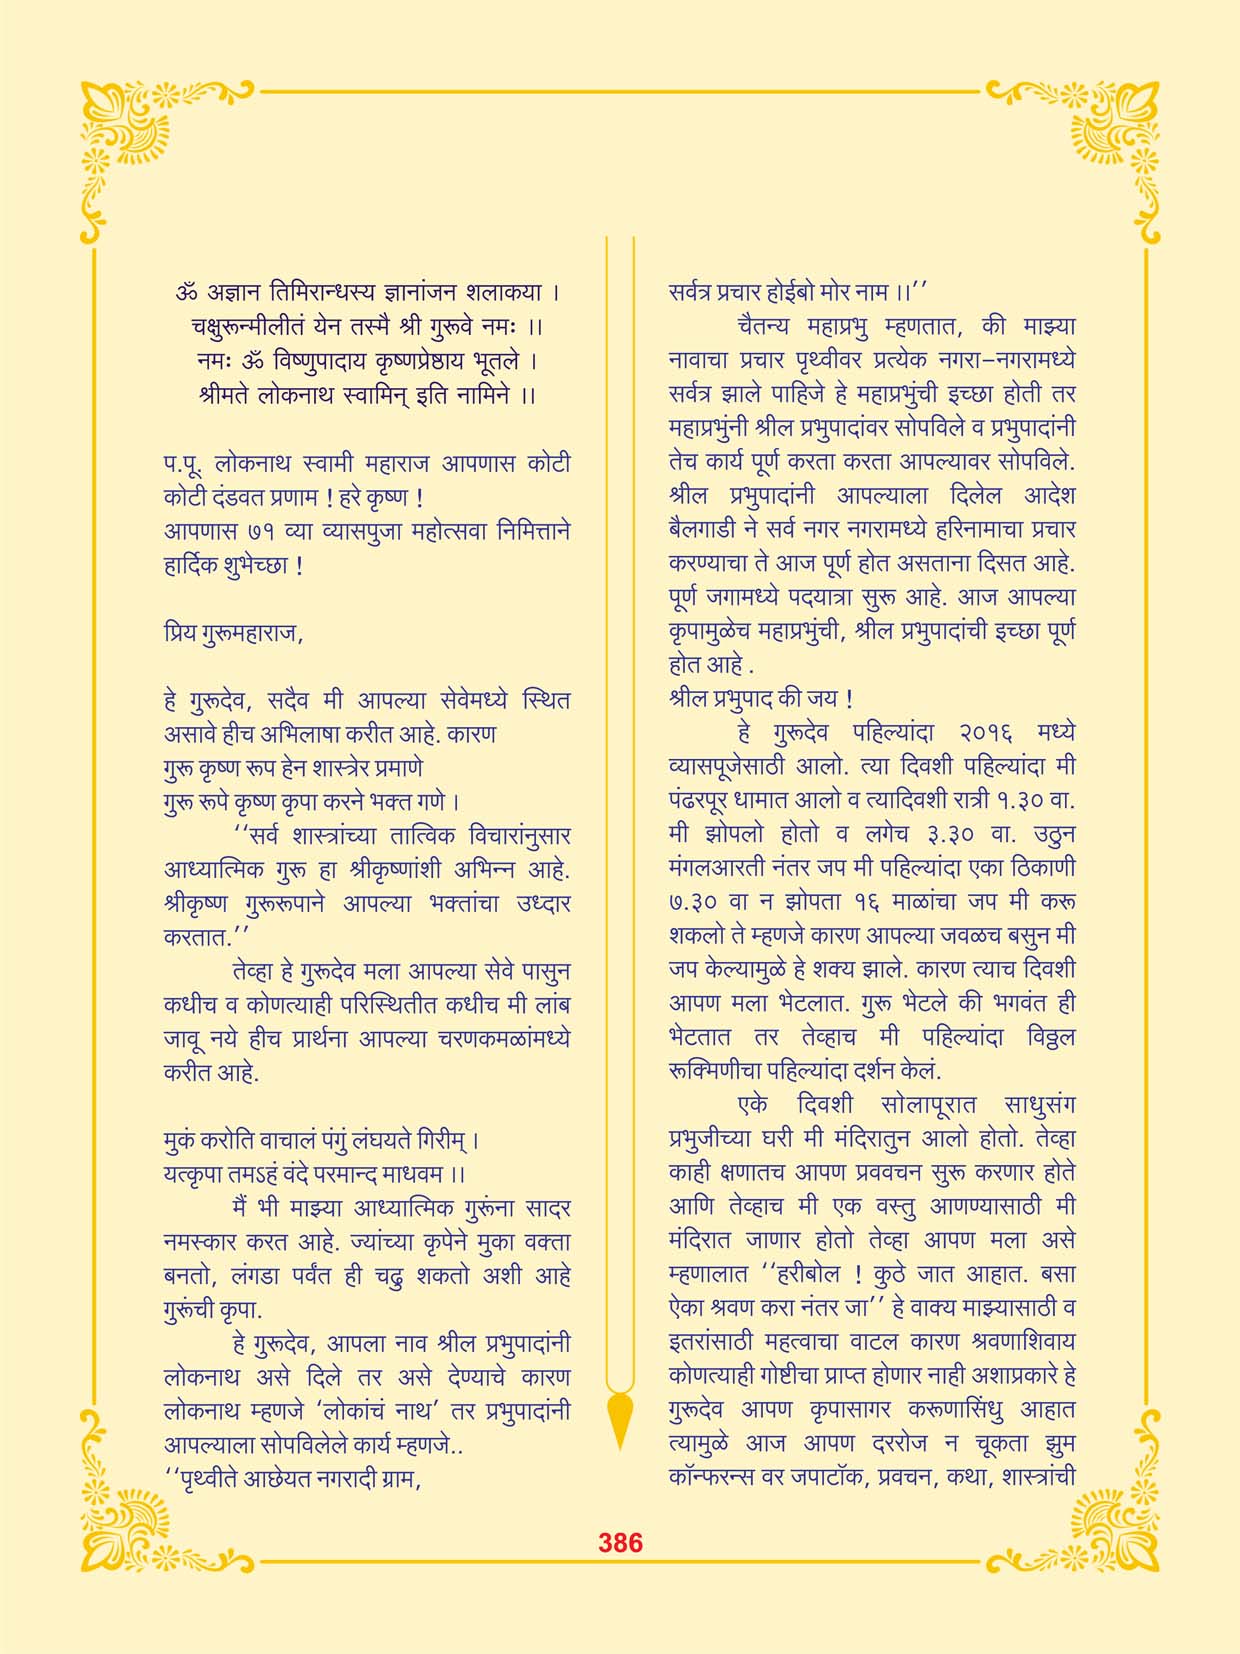 ॐ अज्ञान तिमिरान्धस्य ज्ञानांजन शलाकया ।
चक्षुरून्मीलीतं येन तस्मै श्री गुरूवे नमः ।।
नमः ॐ विष्णुपादाय कृष्णप्रेष्ठाय भूतले ।
श्रीमते लोकनाथ स्वामिन् इति नामिने ।।
प.पू. लोकनाथ स्वामी महाराज आपणास कोटी
कोटी दंडवत प्रणाम ! हरे कृष्ण !
आपणास ७१ व्या व्यासपुजा महोत्सवा निमित्ताने
हार्दिक शुभेच्छा !
प्रिय गुरूमहाराज,
हे गुरूदेव, सदैव मी आपल्या सेवेमध्ये स्थित
असावे हीच अभिलाषा करीत आहे. कारण
गुरू कृष्ण रूप हेन शास्त्रेर प्रमाणे
गुरू रूपे कृष्ण कृपा करने भक्त गणे ।
‘‘सर्व शास्त्रांच्या तात्विक विचारांनुसार
आध्यात्मिक गुरू हा श्रीकृष्णांशी अभिन्न आहे.
श्रीकृष्ण गुरूरूपाने आपल्या भक्तांचा उध्दार
करतात.’’
तेव्हा हे गुरूदेव मला आपल्या सेवे पासुन
कधीच व कोणत्याही परिस्थितीत कधीच मी लांब
जावू नये हीच प्रार्थना आपल्या चरणकमळांमध्ये
करीत आहे.
मुकं करोति वाचालं पंगुं लंघयते गिरीम् ।
यत्कृपा तमऽहं वंदे परमान्द माधवम ।।
मैं भी माझ्या आध्यात्मिक गुरूंना सादर
नमस्कार करत आहे. ज्यांच्या कृपेने मुका वक्ता
बनतो, लंगडा पर्वंत ही चढु शकतो अशी आहे
गुरूंची कृपा.
हे गुरूदेव, आपला नाव श्रील प्रभुपादांनी
लोकनाथ असे दिले तर असे देण्याचे कारण
लोकनाथ म्हणजे ‘लोकांचं नाथ’ तर प्रभुपादांनी
आपल्याला सोपविलेले कार्य म्हणजे..
‘‘पृथ्वीते आछेयत नगरादी ग्राम,
सर्वत्र प्रचार होईबो मोर नाम ।।’’
चैतन्य महाप्रभु म्हणतात, की माझ्या
नावाचा प्रचार पृथ्वीवर प्रत्येक नगरा-नगरामध्ये
सर्वत्र झाले पाहिजे हे महाप्रभुंची इच्छा होती तर
महाप्रभुंनी श्रील प्रभुपादांवर सोपविले व प्रभुपादांनी
तेच कार्य पूर्ण करता करता आपल्यावर सोपविले.
श्रील प्रभुपादांनी आपल्याला दिलेल आदेश
बैलगाडी ने सर्व नगर नगरामध्ये हरिनामाचा प्रचार
करण्याचा ते आज पूर्ण होत असताना दिसत आहे.
पूर्ण जगामध्ये पदयात्रा सुरू आहे. आज आपल्या
कृपामुळेच महाप्रभुंची, श्रील प्रभुपादांची इच्छा पूर्ण
होत आहे .
श्रील प्रभुपाद की जय !
हे गुरूदेव पहिल्यांदा २०१६ मध्ये
व्यासपूजेसाठी आलो. त्या दिवशी पहिल्यांदा मी
पंढरपूर धामात आलो व त्यादिवशी रात्री १.३० वा.
मी झोपलो होतो व लगेच ३.३० वा. उठुन
मंगलआरती नंतर जप मी पहिल्यांदा एका ठिकाणी
७.३० वा न झोपता १६ माळांचा जप मी करू
शकलो ते म्हणजे कारण आपल्या जवळच बसुन मी
जप केल्यामुळे हे शक्य झाले. कारण त्याच दिवशी
आपण मला भेटलात. गुरू भेटले की भगवंत ही
भेटतात तर तेव्हाच मी पहिल्यांदा विठ्ठल
रूक्मिणीचा पहिल्यांदा दर्शन केलं.
एके दिवशी सोलापूरात साधुसंग
प्रभुजीच्या घरी मी मंदिरातुन आलो होतो. तेव्हा
काही क्षणातच आपण प्रववचन सुरू करणार होते
आणि तेव्हाच मी एक वस्तु आणण्यासाठी मी
मंदिरात जाणार होतो तेव्हा आपण मला असे
म्हणालात ‘‘हरीबोल ! कुठे जात आहात. बसा
ऐका श्रवण करा नंतर जा’’ हे वाक्य माझ्यासाठी व
इतरांसाठी महत्वाचा वाटल कारण श्रवणाशिवाय
कोणत्याही गोष्टीचा प्राप्त होणार नाही अशाप्रकारे हे
गुरूदेव आपण कृपासागर करूणासिंधु आहात
त्यामुळे आज आपण दररोज न चूकता झुम
कॉन्फरन्स वर जपाटॉक, प्रवचन, कथा, शास्त्रांची
386